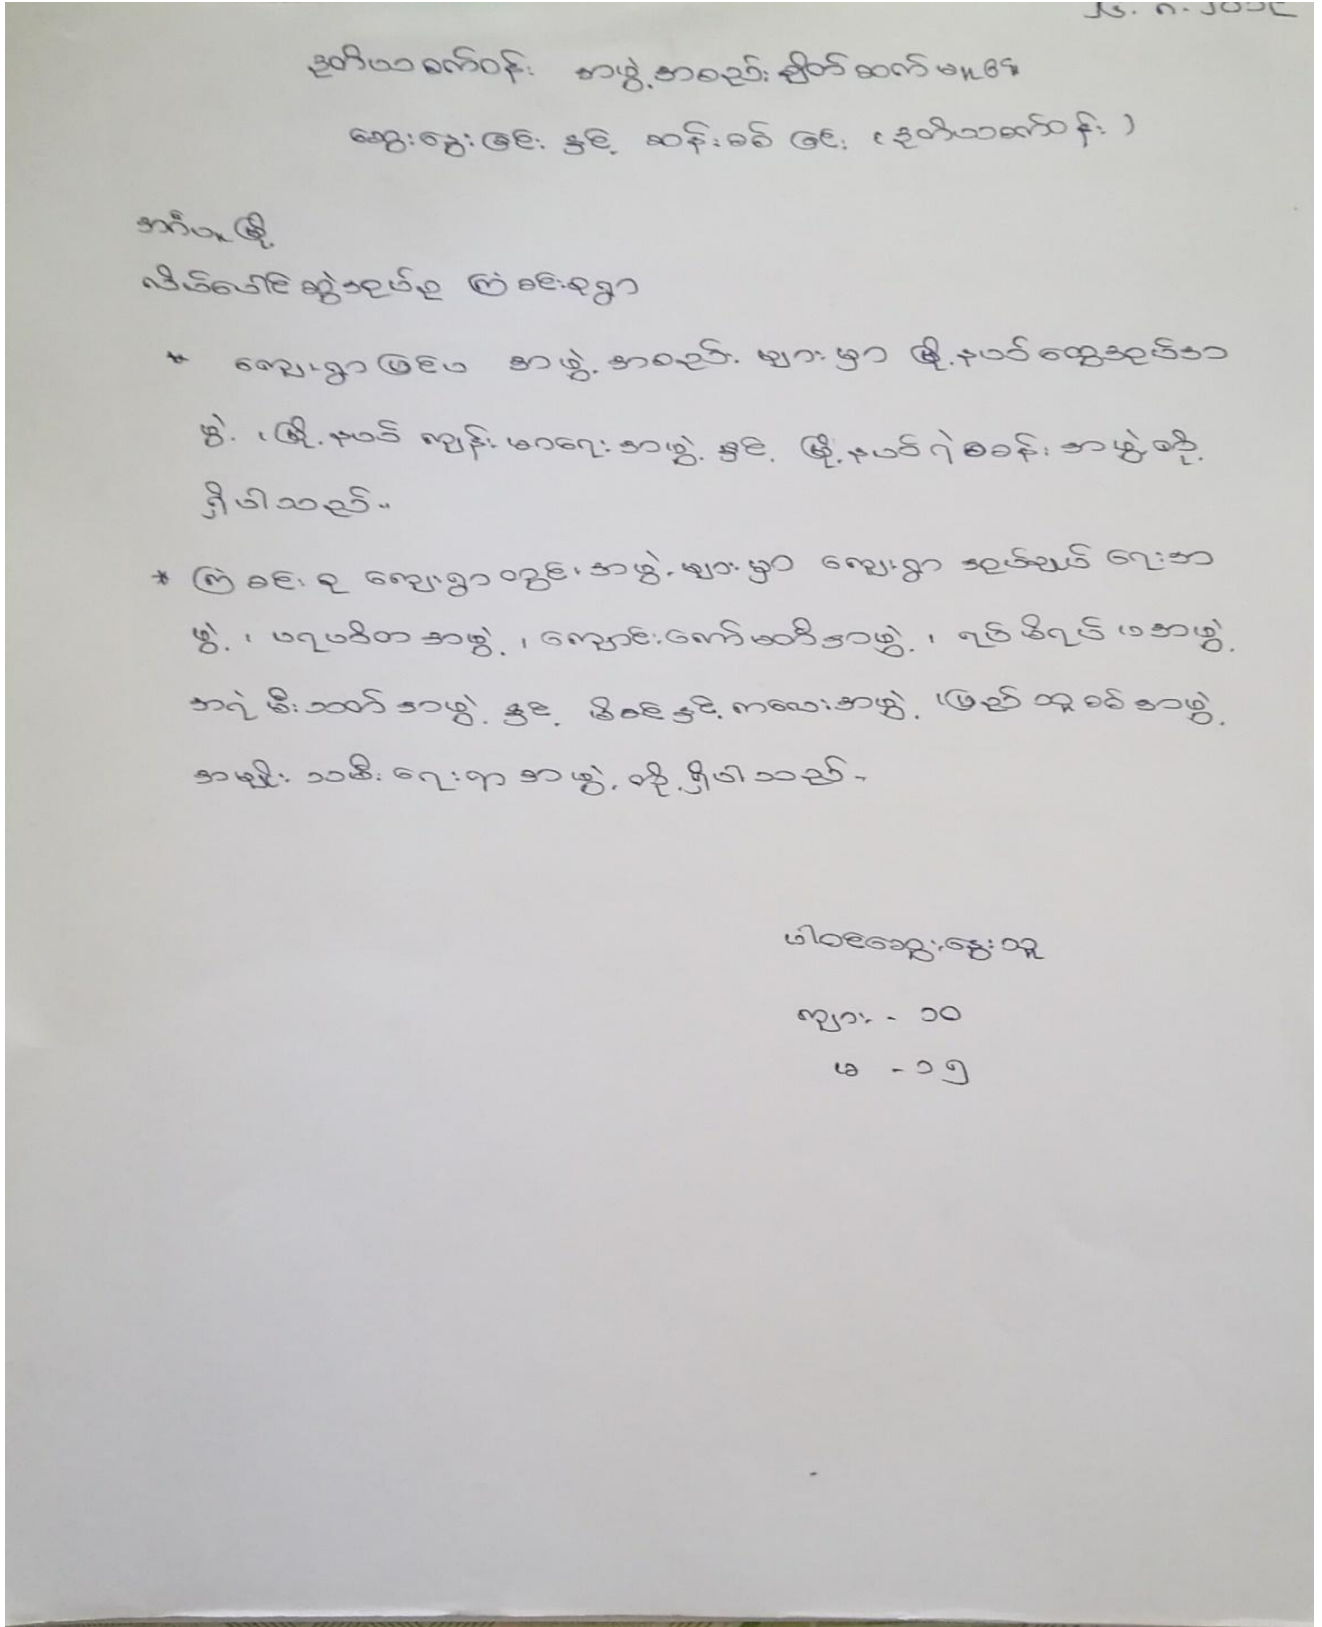 ဒုတိယစက်ဝန်း အဖွဲ့အစည်းချိတ်ဆက်မှု
ဆွေးနွေးခြင်း နှင့် ဆန်းစစ်ခြင်း (ဒုတိယစက်ဝန်း)
အင်္ဂပူမြို့
လိပ်ပေါင်ဆွဲအုပ်စု ကြံခင်းစုရွာ
* ကျေးရွာပြင်ပ အဖွဲ့အစည်းများမှာ မြို့နယ်ထွေအုပ်အ
ဖွဲ့၊ မြို့နယ် ကျန်းမာရေးအဖွဲ့ နှင့် မြို့နယ်ရဲစခန်းအဖွဲ့တို့
ရှိပါသည်။
* ကြံခင်းစု ကျေးရွာတွင်းအဖွဲ့များမှာ ကျေးရွာ အုပ်ချုပ်ရေးအ
ဖွဲ့၊ ပရဟိတအဖွဲ့၊ ကျောင်းကော်မတီအဖွဲ့၊ ရပ်မိရပ်ဖအဖွဲ့
အရံမီးသတ်အဖွဲ့ နှင့် မိခင်နှင့်ကလေးအဖွဲ့ ပြည်သူ့စစ်အဖွဲ့
အမျိုးသမီးရေးရာအဖွဲ့တို့ရှိပါသည်။
ပါဝင်ဆွေးနွေးသူ
ကျား - ၁၀
မ - ၁၅